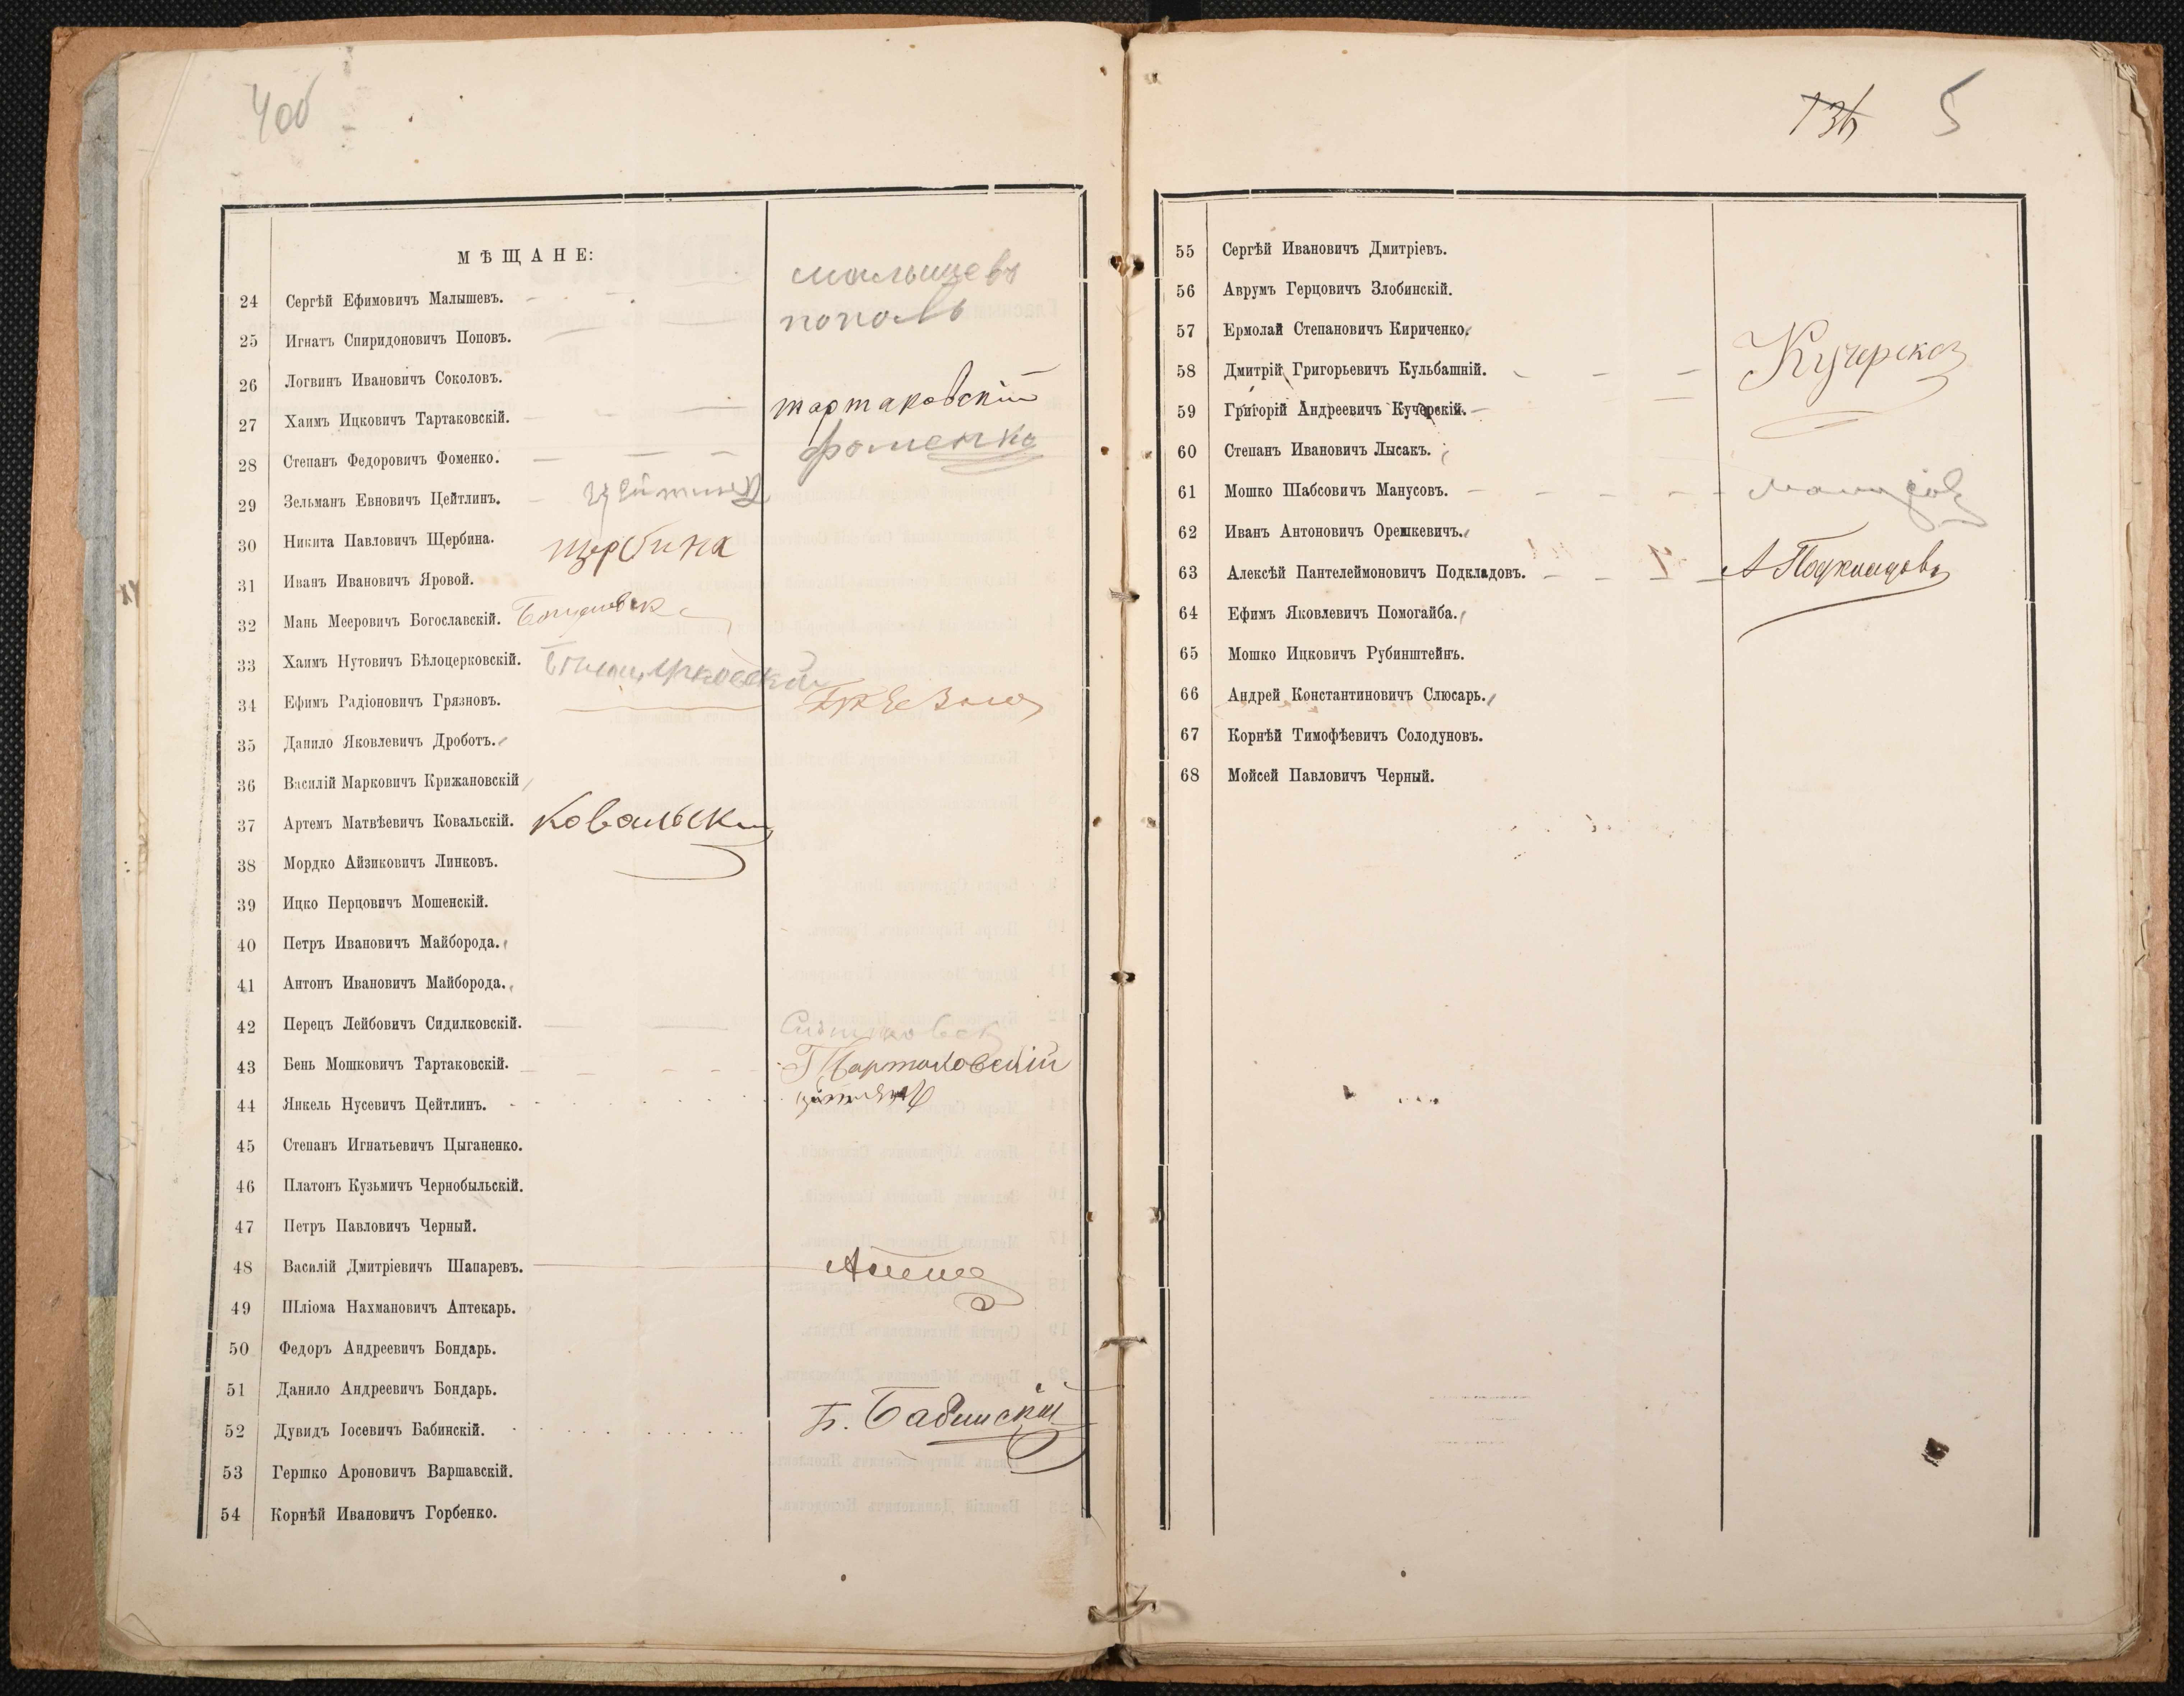 4об
МѢЩАНЕ:
24 Сергѣй Ефимовичъ Малышевъ. малышевъ
25 Игнатъ Спиридоновичъ Поповъ. поповъ
26 Логвинъ Ивановичъ Соколовъ.
27 Хаимъ Ицковичъ Тартаковскій. тартаковскій
28 Степанъ Федоровичъ Фоменко. фоменко
29 Зельманъ Евновичъ Цейтлинъ.
30 Никита Павловичъ Щербина. щербина
31 Иванъ Ивановичъ Яровой.
32 Мань Мееровичъ Богославскій.
33 Хаимъ Нутовичъ Бѣлоцерковскій.
34 Ефимъ Радіоновичъ Грязновъ.
35 Данило Яковлевичъ Дроботъ.
36 Василій Марковичъ Крижановскій
37 Артемъ Матвѣевичъ Ковальскій. Ковальский
38 Мордко Айзиковичъ Линковъ.
39 Ицко Перцовичъ Мошенскій.
40 Петръ Ивановичъ Майборода.
41 Антонъ Ивановичъ Майборода.
42 Перецъ Лейбовичъ Сидилковскій.
43 Бень Мошковичъ Тартаковскій. Тартаковскій
44 Янкель Нусевичъ Цейтлинъ.
45 Степанъ Игнатьевичъ Цыганенко.
46 Платонъ Кузьмичъ Чернобыльскій.
47 Петръ Павловичъ Черный.
48 Василій Дмитріевичъ Шапаревъ.
49 Шліома Нахмановичъ Аптекарь.
50 Федоръ Андреевичъ Бондарь.
51 Данило Андреевичъ Бондарь.
52 Дувидъ Іосевичъ Бабинскій. Б. Бабинскій
53 Гершко Ароновичъ Варшавскій.
54 Корнѣй Ивановичъ Горбенко.
5
55 Сергѣй Ивановичъ Дмитріевъ.
56 Аврумъ Герцовичъ Злобинскій.
57 Ермолай Степановичъ Кириченко.
58 Дмитрій Григорьевичъ Кульбашній.
59 Григорій Андреевичъ Кучерскій.
60 Степанъ Ивановичъ Лысакъ.
61 Мошко Шабсовичъ Манусовъ.
62 Иванъ Антоновичъ Орешкевичъ.
63 Алексѣй Пантелеймоновичъ Подкладовъ. А Подкладовъ
64 Ефимъ Яковлевичъ Помогайба.
65 Мошко Ицковичъ Рубинштейнъ.
66 Андрей Константиновичъ Слюсарь.
67 Корнѣй Тимофѣевичъ Солодуновъ.
68 Мойсей Павловичъ Черный.